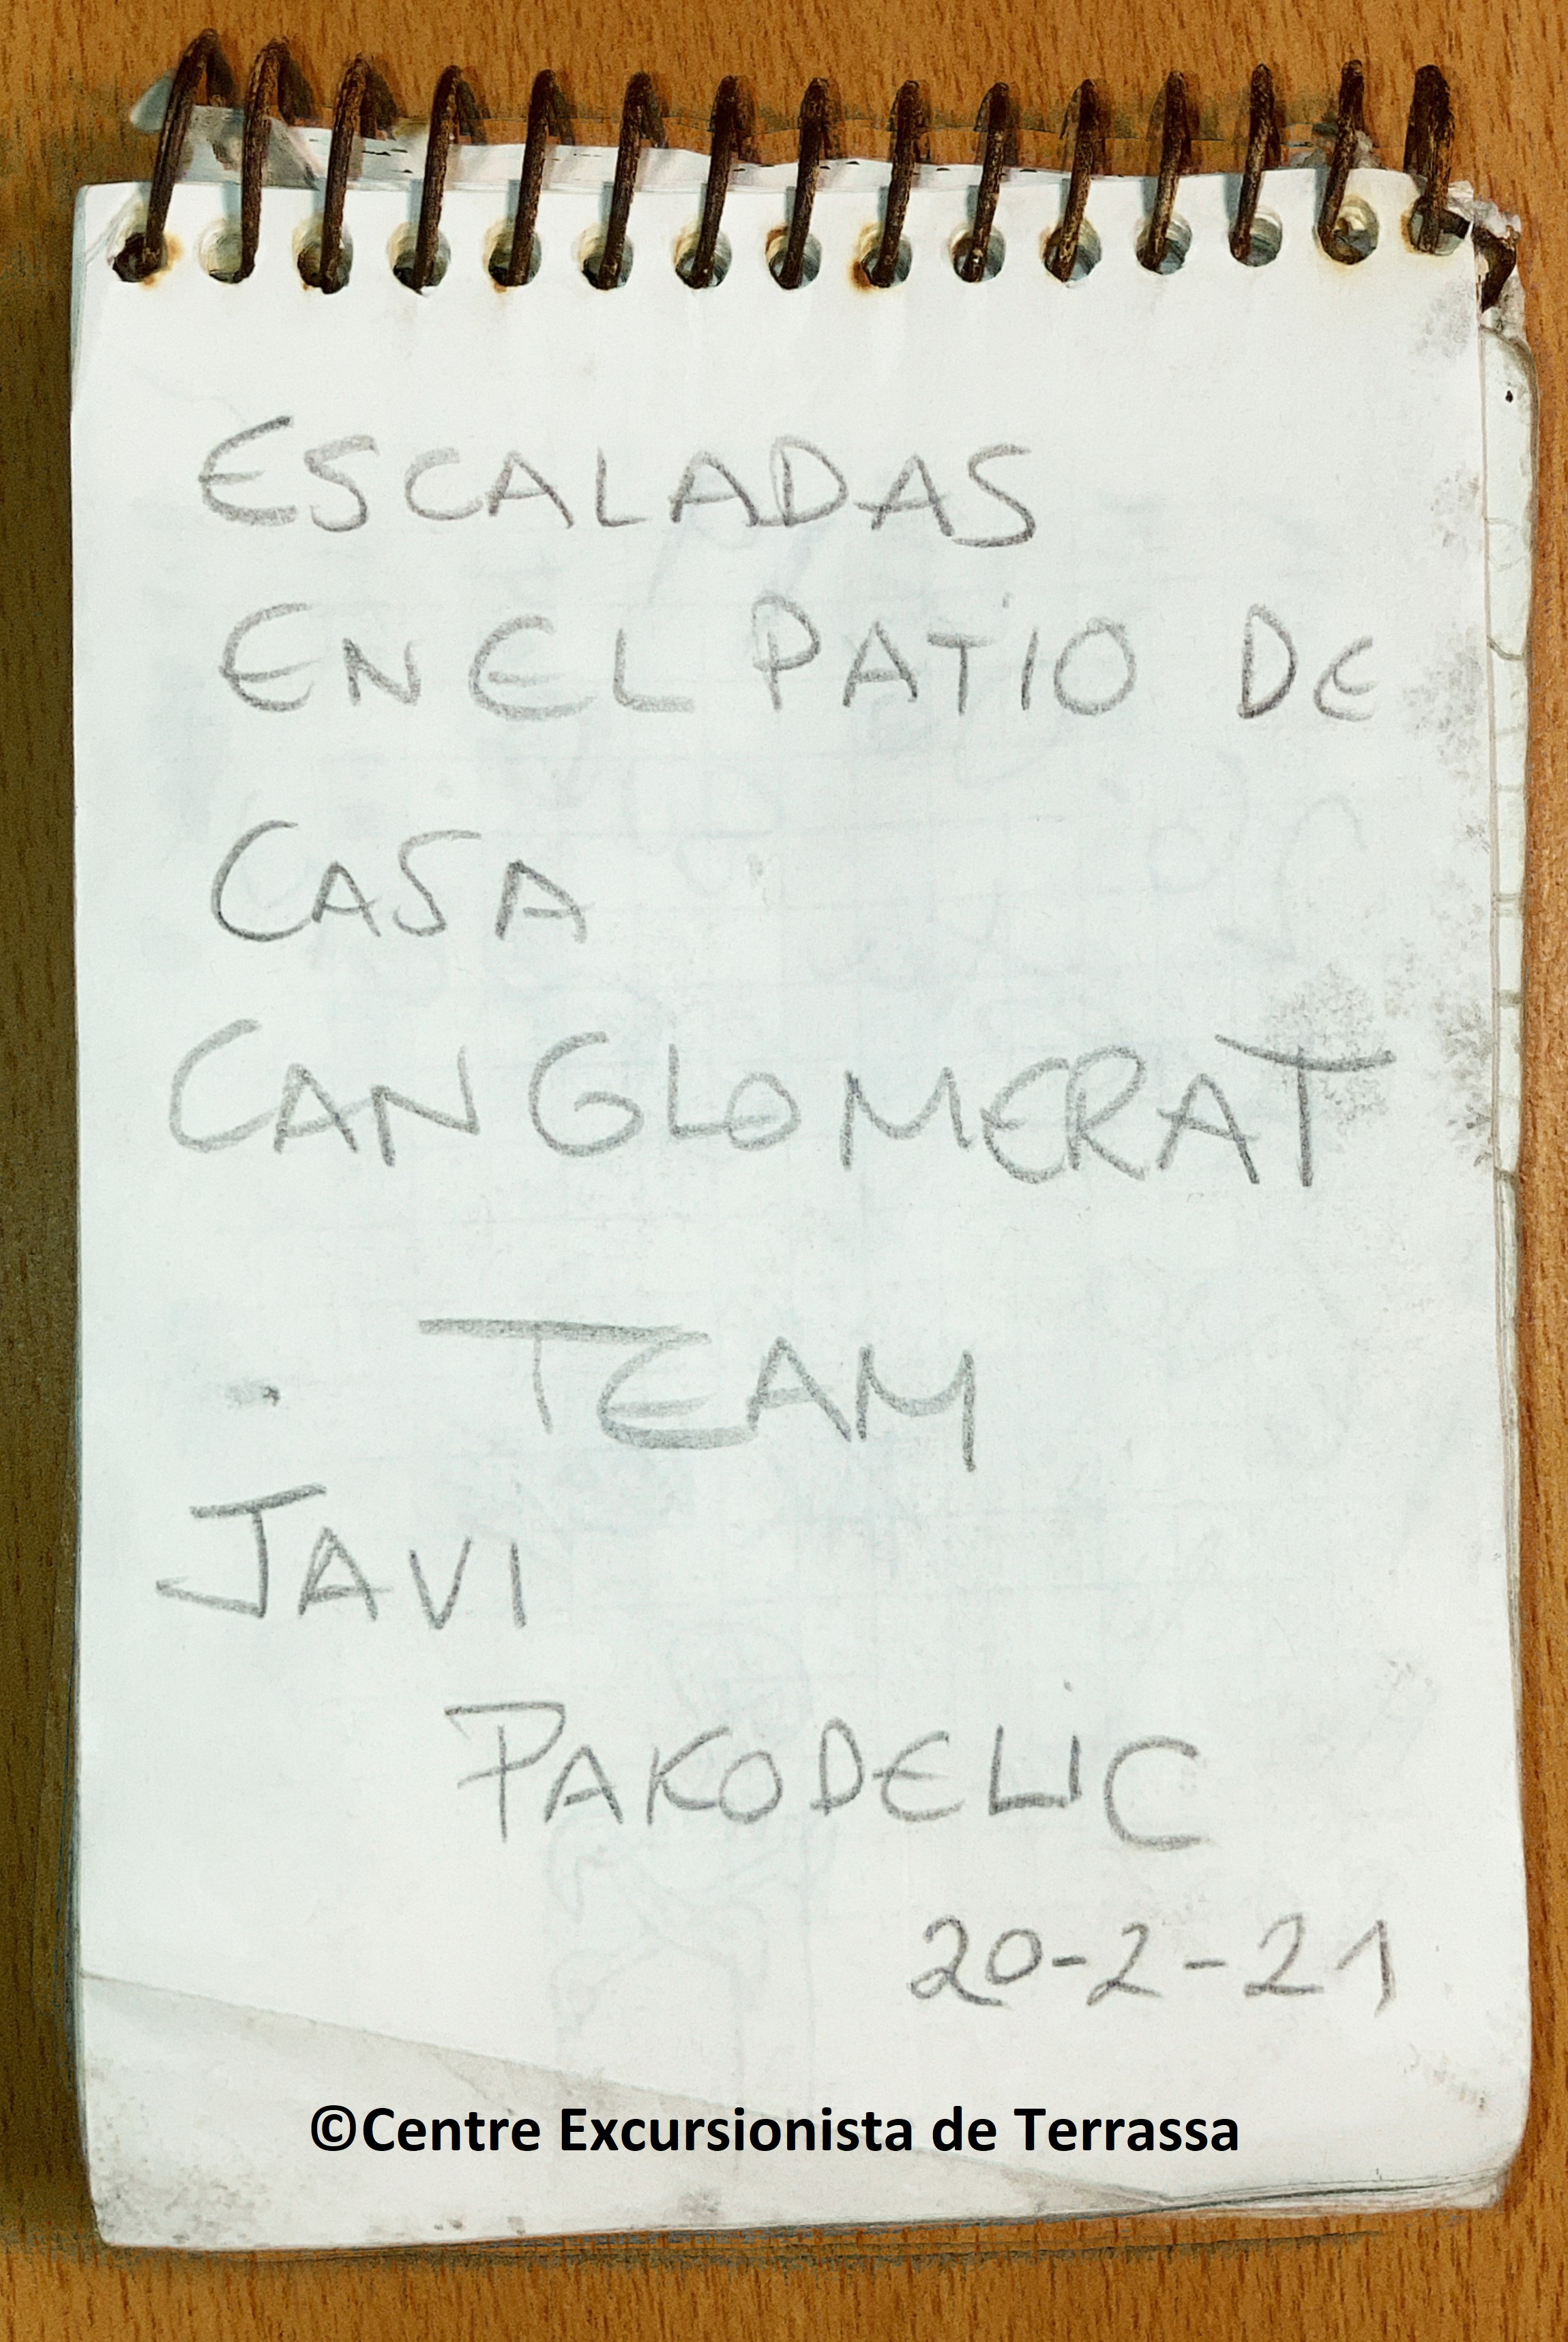 ESCALADAS
EN EL PATIO DE
CASA
CANGLOMERAT
TEAM
JAVI
PAKODELIC
20-2-21
©Centre Excursionista de Terrassa